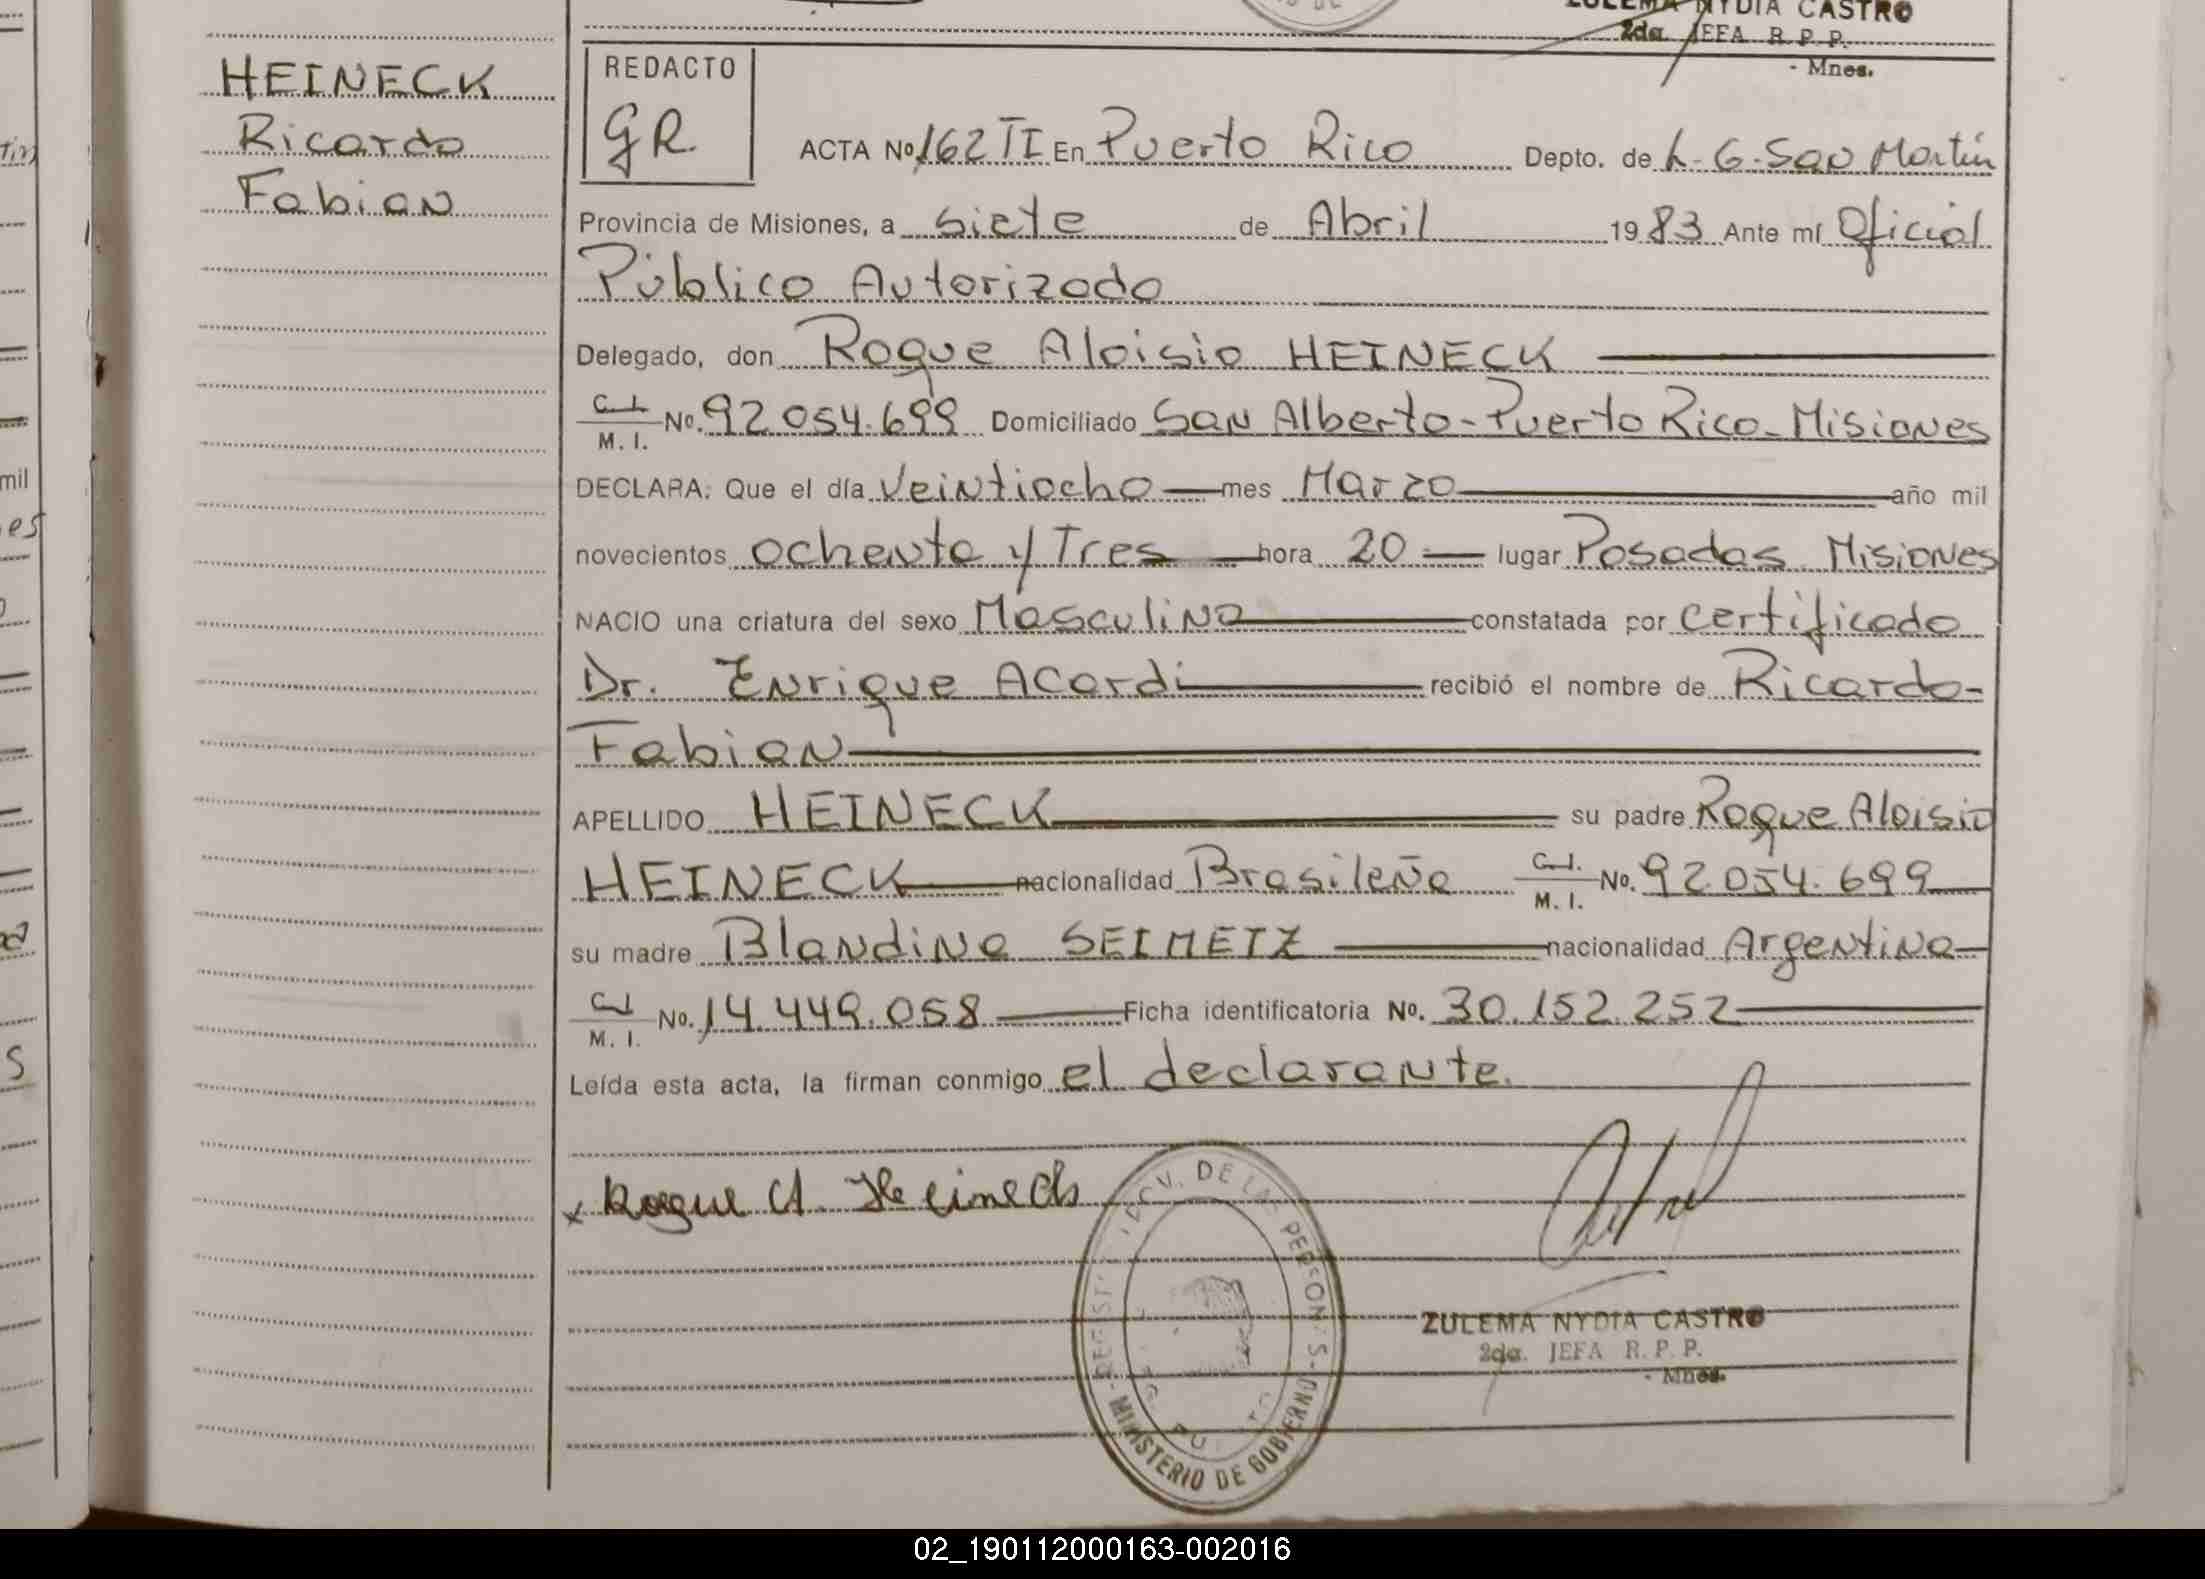 ZULEMA NYDIA CASTRO
2da. JEFA R. P. P.
- Mnes.
HEINECK
Ricardo
Fabian
REDACTO
GR
ACTA Nº 162 TI En Puerto Rico Depto. de L. G. San Martín
Provincia de Misiones, a siete de Abril 1983 Ante mí Oficial
Público Autorizado
Delegado, don Roque Aloisio HEINECK
C.I. M. I. No. 92.054.699 Domiciliado San Alberto - Puerto Rico - Misiones
DECLARA: Que el día Veintiocho mes Marzo año mil
novecientos ochenta y Tres hora 20 lugar Posadas Misiones
NACIO una criatura del sexo Masculino constatada por certificado
Dr. Enrique Acordi recibió el nombre de Ricardo-
Fabian
APELLIDO HEINECK su padre Roque Aloisio
HEINECK nacionalidad Brasileña C.I. M. I. No. 92.054.699
su madre Blandina SEIMETZ nacionalidad Argentina
C.I. M. I. No. 14.449.058 Ficha identificatoria No. 30.152.252
Leída esta acta, la firman conmigo el declarante.
x Roque A. Heineck
DE LAS PERSONAS - MINISTERIO DE GOBIERNO
ZULEMA NYDIA CASTRO
2da. JEFA R. P. P.
- Mnes.
02_190112000163-002016